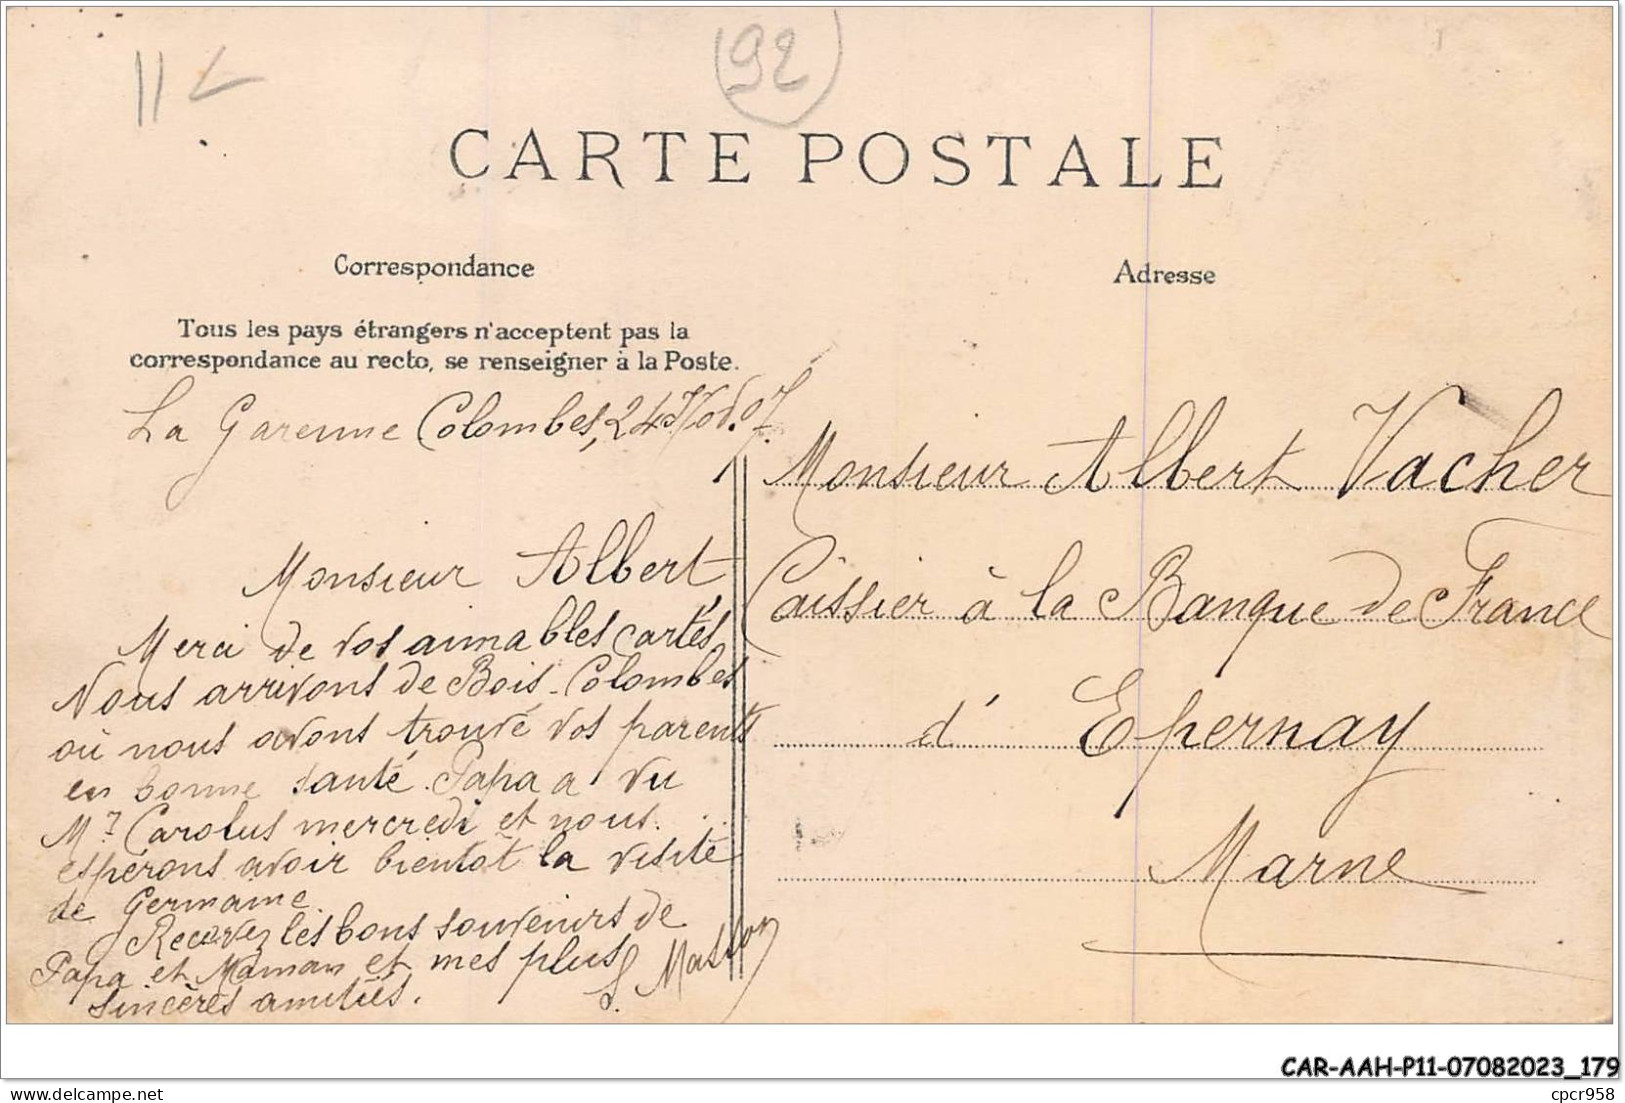 92
CARTE POSTALE
Correspondance
Tous les pays étrangers n'acceptent pas la
correspondance au recto, se renseigner à la Poste.
La Garenne Colombes, 24 9bre 07.
Monsieur Albert
Merci de vos aimables cartes,
Nous arrivons de Bois-Colombes
où nous avons trouvé vos parents
en bonne santé. Papa a vu
Mr Carolus mercredi et nous
espérons avoir bientôt la visite
de Germaine.
Recevez les bons souvenirs de
Papa et Maman et mes plus
sincères amitiés.
S. Masson
Adresse
Monsieur Albert Vacher
Caissier à la Banque de France
d'Epernay
Marne
CAR-AAH-P11-07082023_179
cpcr958